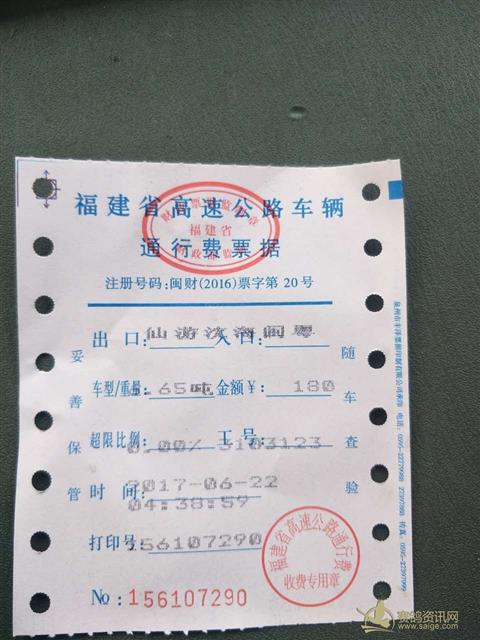 福建省高速公路车辆
通行费票据
福建省
注册号码:闽财(2016)票字第20号
出口:仙游沈海 入口:闽粤
车型/重量: .65吨 金额¥: 180
超限比例: 0.00% 工号: 3103123
时间: 2017-06-22
04:38:59
打印号: 156107290
No: 156107290
妥善保管
随车查验
福建省高速公路通行费
收费专用章
赛鸽资讯网
www.saige.com